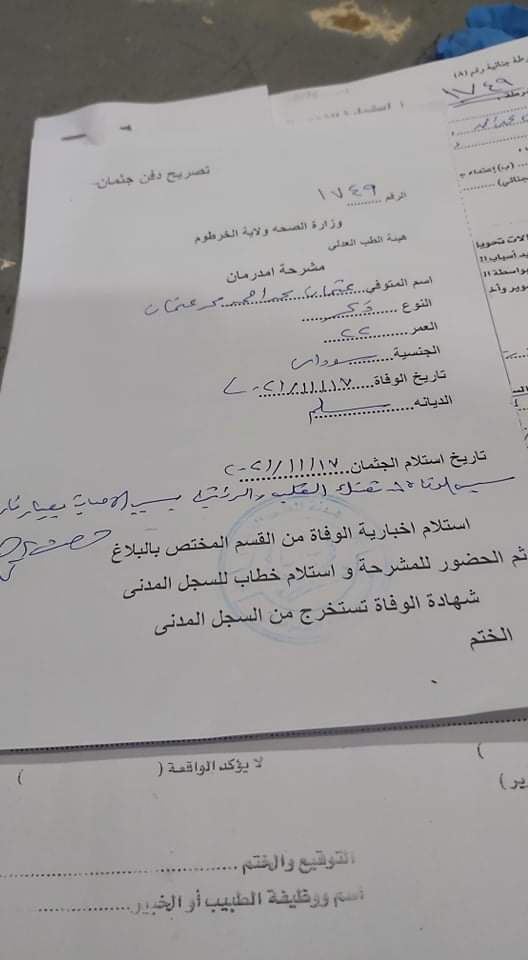 تصريح دفن جثمان
الرقم ١٧٤٩
وزارة الصحه ولاية الخرطوم
هيئة الطب العدلي
مشرحة امدرمان
اسم المتوفي عثمان محمد احمد عثمان
النوع ذكر
العمر ٢٢
الجنسية سوداني
تاريخ الوفاة ٢٠٢١/١١/١٧
الديانه مسلم
تاريخ استلام الجثمان ٢٠٢١/١١/١٧
سبب الوفاة تهتك القلب والرئتين بسبب الاصابة بعيار
استلام اخبارية الوفاة من القسم المختص بالبلاغ
ثم الحضور للمشرحة و استلام خطاب للسجل المدنى
شهادة الوفاة تستخرج من السجل المدنى
الختم
رطة جنائية رقم (٨)
١٧٤٩
لا يؤكد الواقعة ( )
التوقيع والختم
اسم ووظيفة الطبيب أو الخبير